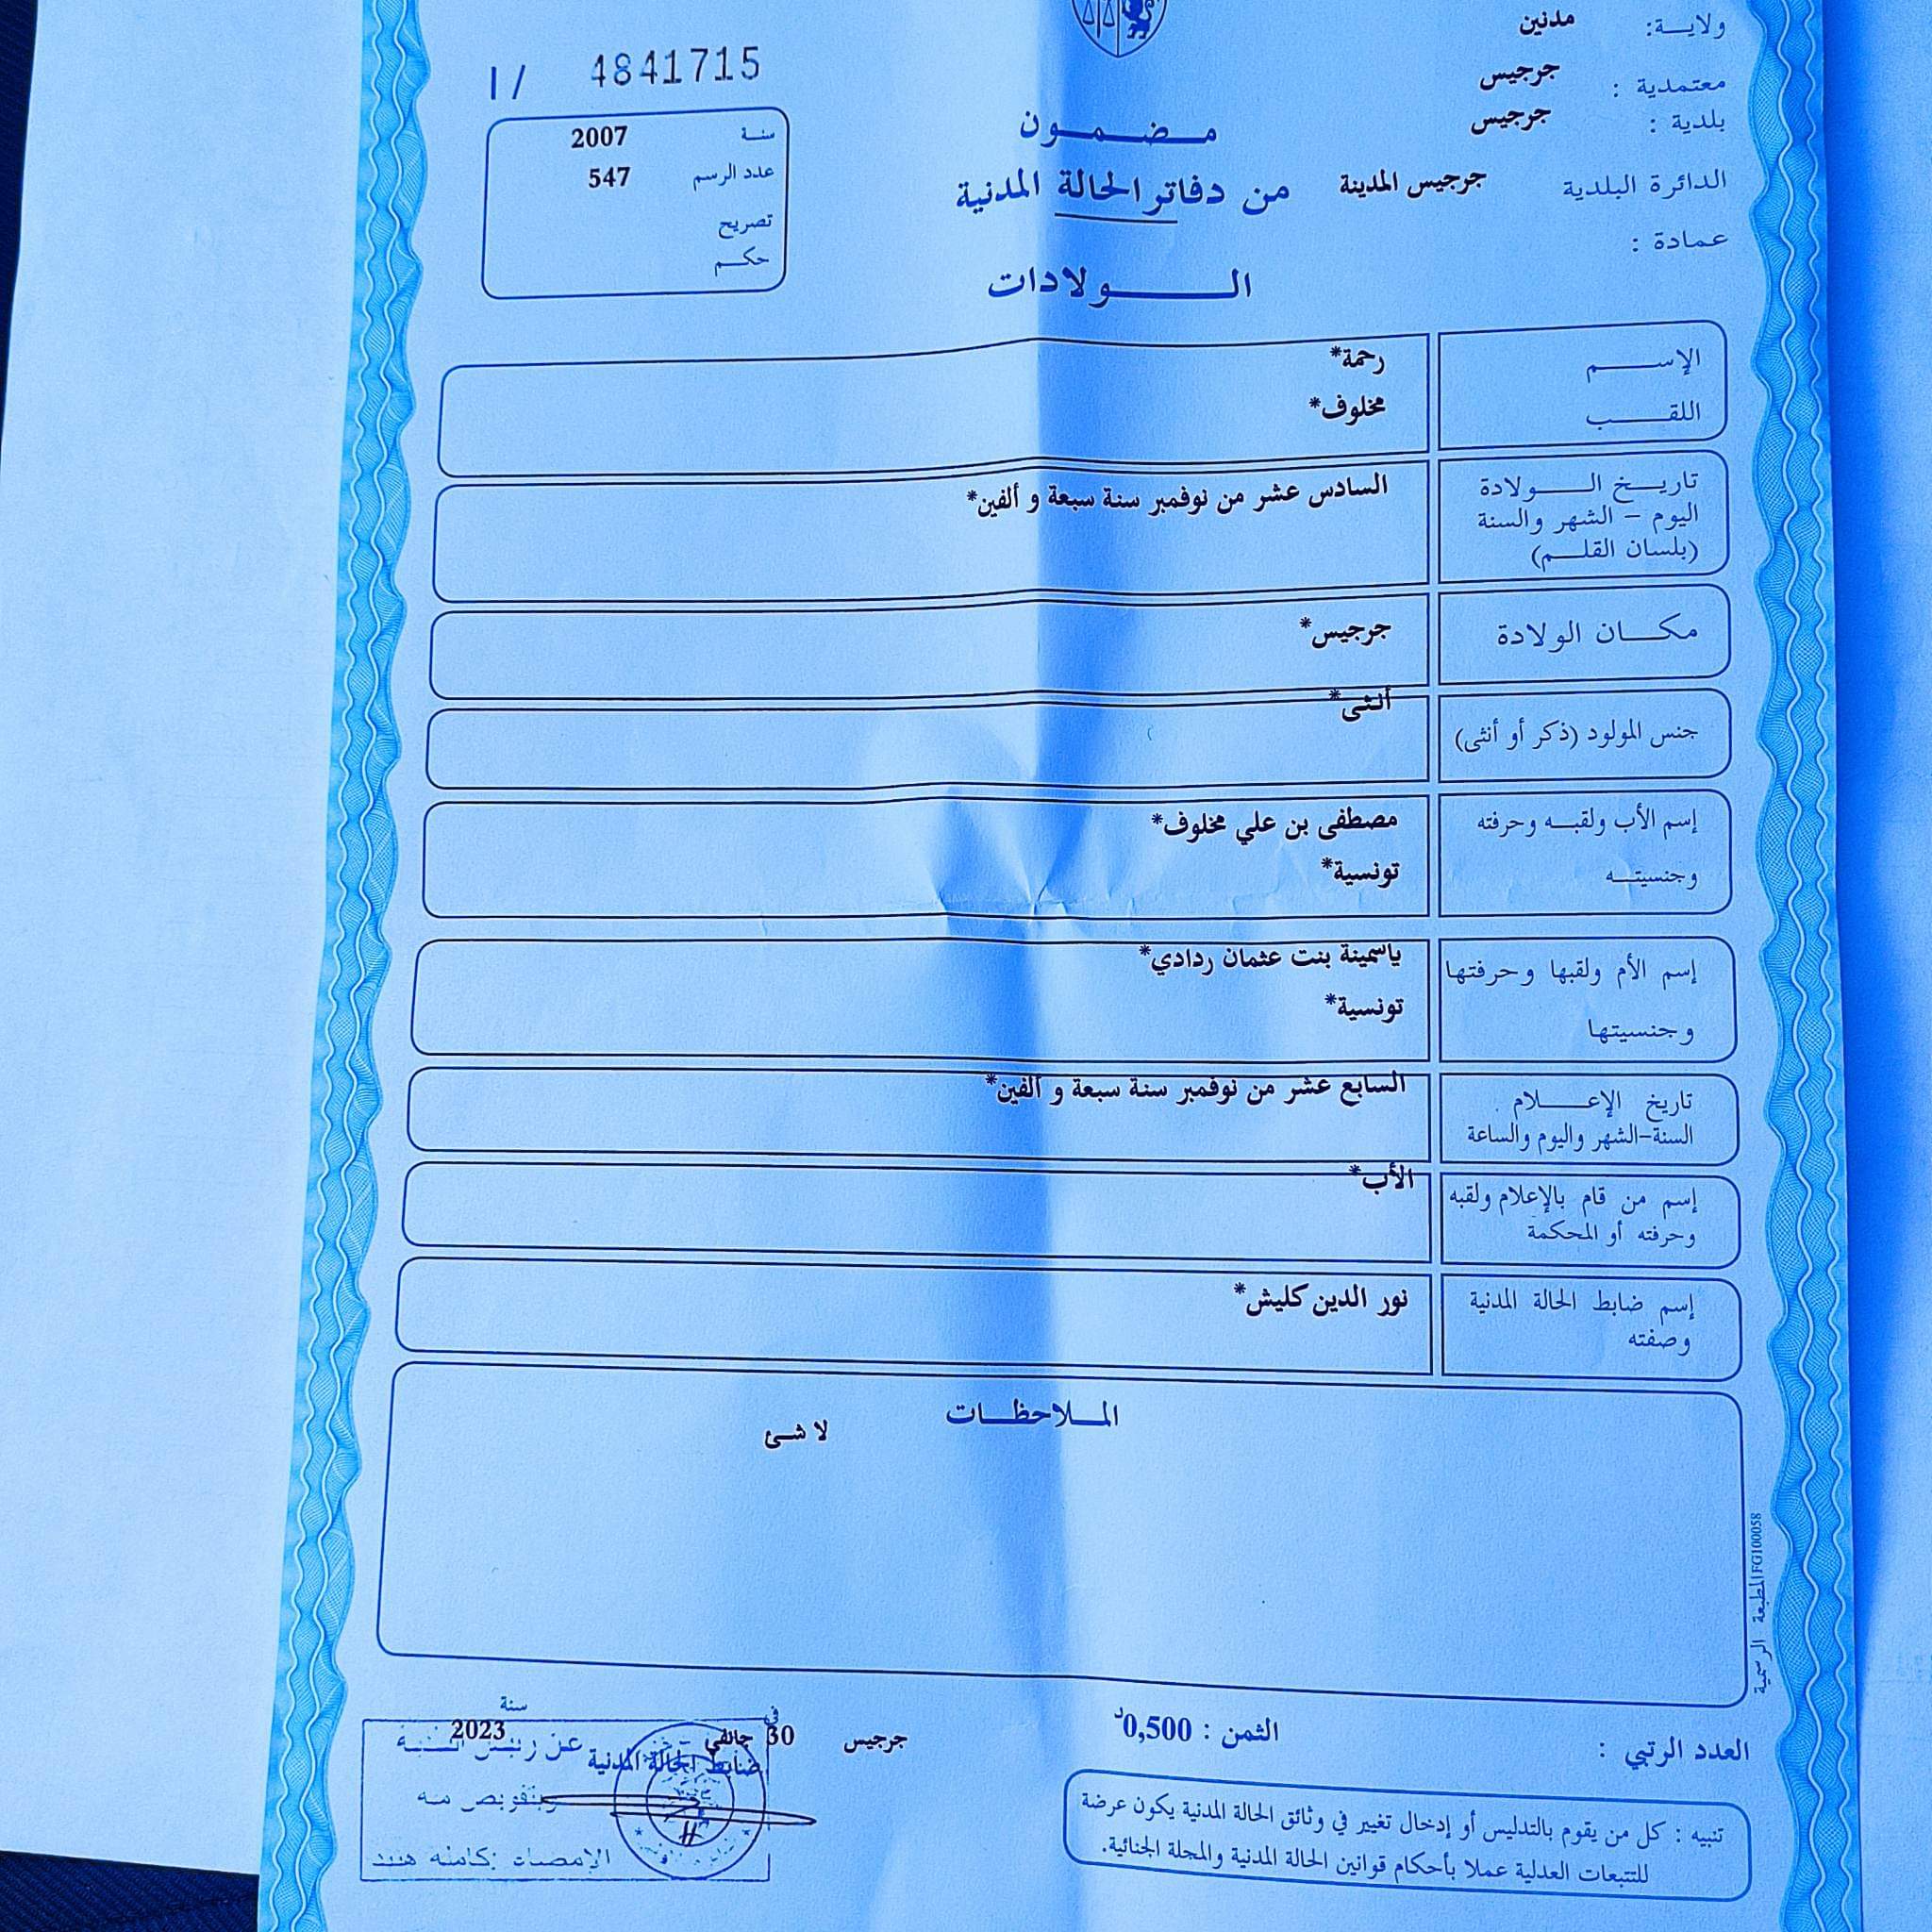 ولاية: مدنين
معتمدية : جرجيس
بلدية : جرجيس
الدائرة البلدية جرجيس المدينة
عمادة :
I / 4841715
سنة 2007
عدد الرسم 547
تصريح
حكم
مضمون
من دفاتر الحالة المدنية
الولادات
الإسم رحمة*
اللقب مخلوف*
تاريخ الولادة السادس عشر من نوفمبر سنة سبعة و ألفين*
اليوم - الشهر والسنة
(بلسان القلم)
مكان الولادة جرجيس*
جنس المولود (ذكر أو أنثى) أنثى*
إسم الأب ولقبه وحرفته مصطفى بن علي مخلوف*
وجنسيته تونسية*
إسم الأم ولقبها وحرفتها ياسمينة بنت عثمان ردادي*
وجنسيتها تونسية*
تاريخ الإعلام السابع عشر من نوفمبر سنة سبعة و ألفين*
السنة-الشهر واليوم والساعة
إسم من قام بالإعلام ولقبه الأب*
وحرفته أو المحكمة
إسم ضابط الحالة المدنية نور الدين كليش*
وصفته
الملاحظات
لا شئ
المطبعة الرسمية FG100058
العدد الرتبي :
الثمن : 0,500د
جرجيس في 30 جانفي سنة 2023
ضابط الحالة المدنية
عن رئيس
وبتفويض منه
الإمضاء :كاملة هنيد
تنبيه : كل من يقوم بالتدليس أو إدخال تغيير في وثائق الحالة المدنية يكون عرضة
للتتبعات العدلية عملا بأحكام قوانين الحالة المدنية والمجلة الجنائية.